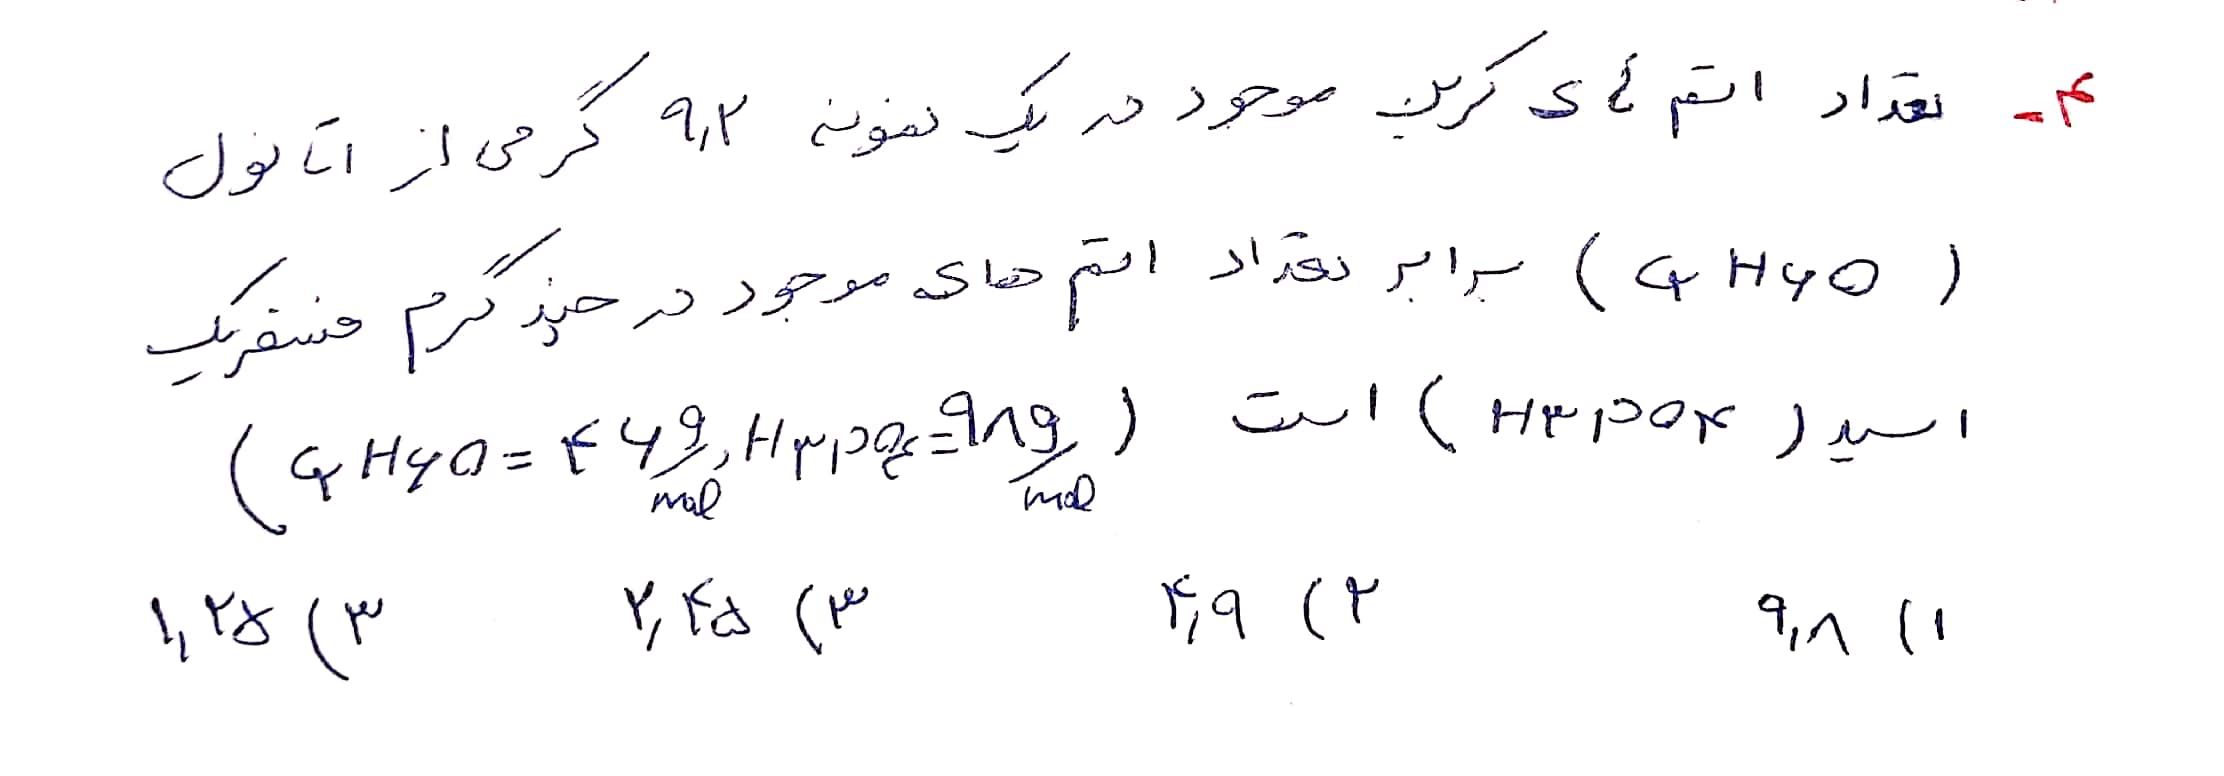 ۴- تعداد اتم های کربن موجود در یک نمونه ۹,۲ گرمی از اتانول
(C۲H۶O) برابر تعداد اتم های موجود در چند گرم فسفریک
اسید (H۳PO۴) است (C۲H۶O = ۴۶ g/mol, H۳PO۴ = ۹۸ g/mol)
۱) ۹,۸ ۲) ۴,۹ ۳) ۲,۴۵ ۳) ۱,۲۵